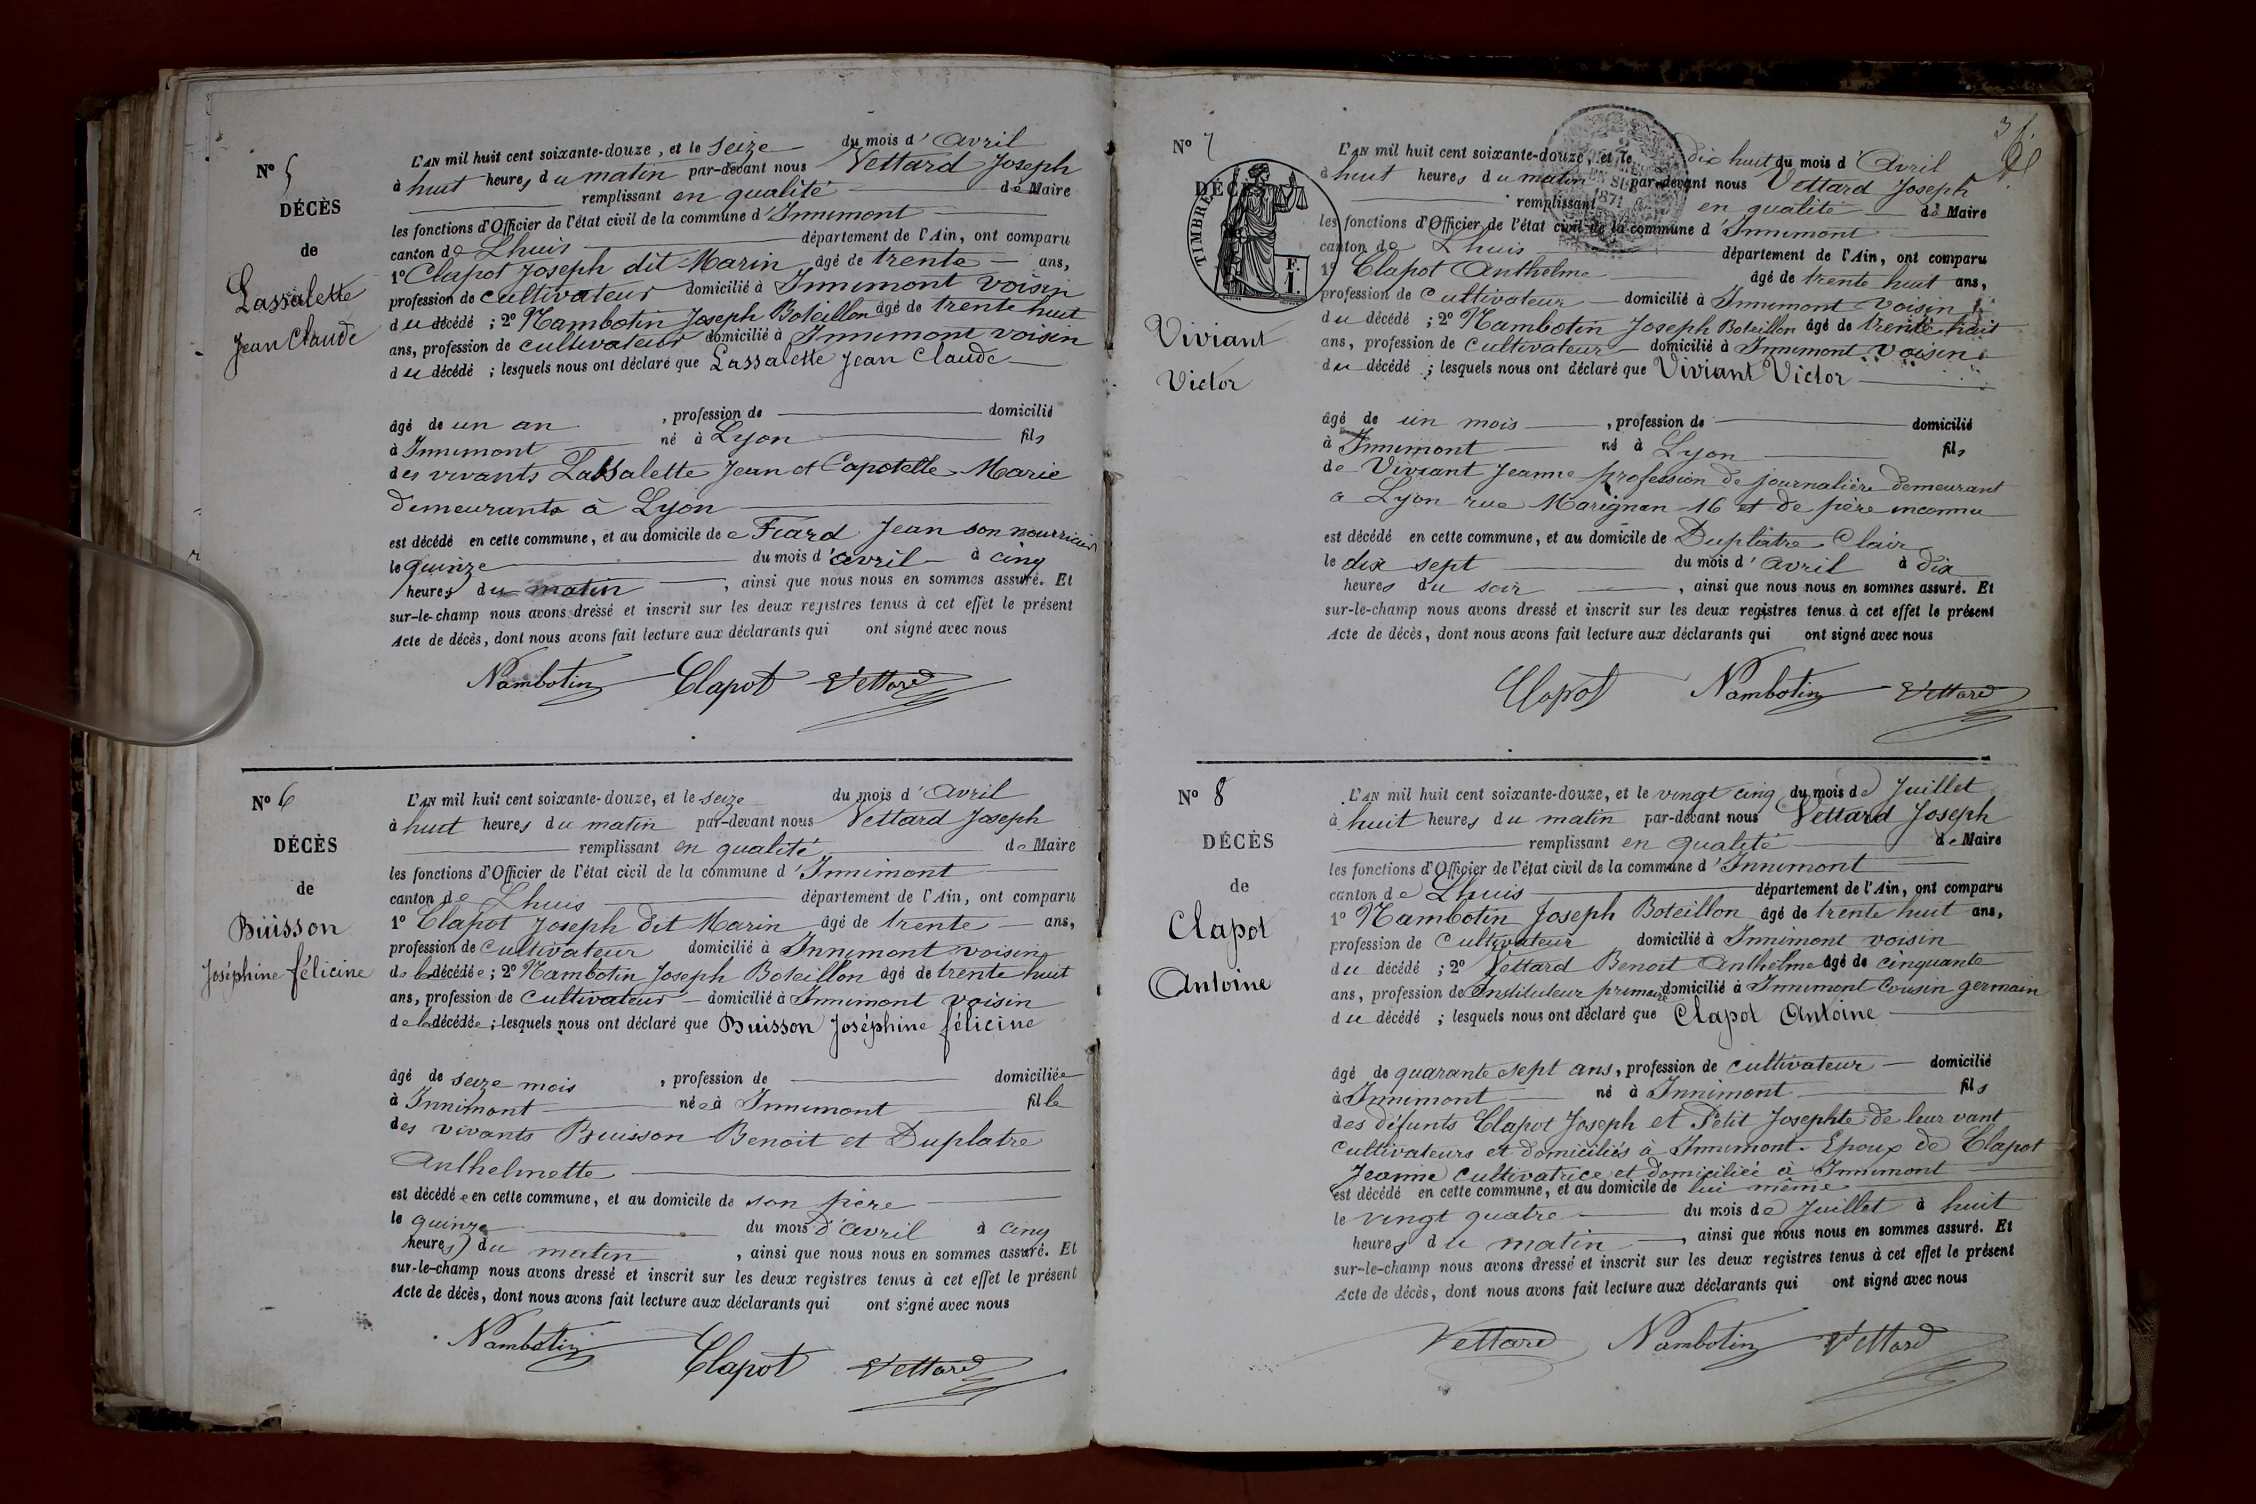 N° 5
DÉCÈS
de
Lassalette
Jean Claude
L'AN mil huit cent soixante-douze, et le seize du mois d'Avril
à huit heures du matin par-devant nous Vettard Joseph
remplissant en qualité de Maire
les fonctions d'Officier de l'état civil de la commune d'Innimont
canton de Lhuis département de l'Ain, ont comparu
1° Clapot Joseph dit Marin âgé de trente ans,
profession de cultivateur domicilié à Innimont voisin
du décédé ; 2° Nambotin Joseph Boteillon âgé de trente huit
ans, profession de cultivateur domicilié à Innimont voisin
du décédé ; lesquels nous ont déclaré que Lassalette Jean Claude
âgé de un an , profession de domicilié
à Innimont né à Lyon fils
des vivants Lassalette Jean et Capotelle Marie
demeurants à Lyon
est décédé en cette commune, et au domicile de Fiard Jean son nourricier
le quinze du mois d'avril à cinq
heures du matin , ainsi que nous nous en sommes assuré. Et
sur-le-champ nous avons dressé et inscrit sur les deux registres tenus à cet effet le présent
Acte de décès, dont nous avons fait lecture aux déclarants qui ont signé avec nous
Nambotin Clapot Vettard
N° 6
DÉCÈS
de
Buisson
Joséphine félicine
L'AN mil huit cent soixante-douze, et le seize du mois d'Avril
à huit heures du matin par-devant nous Vettard Joseph
remplissant en qualité de Maire
les fonctions d'Officier de l'état civil de la commune d'Innimont
canton de Lhuis département de l'Ain, ont comparu
1° Clapot Joseph dit Marin âgé de trente ans,
profession de cultivateur domicilié à Innimont voisin
de la décédée ; 2° Nambotin Joseph Boteillon âgé de trente huit
ans, profession de cultivateur domicilié à Innimont voisin
de la décédée ; lesquels nous ont déclaré que Buisson Joséphine félicine
âgé de seize mois , profession de domiciliée
à Innimont née à Innimont fille
des vivants Buisson Benoit et Duplatre
Anthelmette
est décédée en cette commune, et au domicile de son père
le quinze du mois d'avril à cinq
heures du matin , ainsi que nous nous en sommes assuré. Et
sur-le-champ nous avons dressé et inscrit sur les deux registres tenus à cet effet le présent
Acte de décès, dont nous avons fait lecture aux déclarants qui ont signé avec nous
Nambotin Clapot Vettard
N° 7
DÉC
TIMBRE
F.
1.
Viviant
Victor
L'AN mil huit cent soixante-douze, et le dix huit du mois d'Avril
à huit heures du matin par-devant nous Vettard Joseph
1871
remplissant en qualité de Maire
les fonctions d'Officier de l'état civil de la commune d'Innimont
canton de Lhuis département de l'Ain, ont comparu
1° Clapot Anthelme âgé de trente huit ans,
profession de cultivateur domicilié à Innimont voisin
du décédé ; 2° Nambotin Joseph Boteillon âgé de trente huit
ans, profession de cultivateur domicilié à Innimont voisin
du décédé ; lesquels nous ont déclaré que Viviant Victor
âgé de un mois , profession de domicilié
à Innimont né à Lyon fils
de Viviant Jeanne profession de journalière demeurant
a Lyon rue Marignan 16 et de père inconnu
est décédé en cette commune, et au domicile de Duplâtre Clair
le dix sept du mois d'avril à dix
heures du soir , ainsi que nous nous en sommes assuré. Et
sur-le-champ nous avons dressé et inscrit sur les deux registres tenus à cet effet le présent
Acte de décès, dont nous avons fait lecture aux déclarants qui ont signé avec nous
Clapot Nambotin Vettard
N° 8
DÉCÈS
de
Clapot
Antoine
L'AN mil huit cent soixante-douze, et le vingt cinq du mois de Juillet
à huit heures du matin par-devant nous Vettard Joseph
remplissant en qualité de Maire
les fonctions d'Officier de l'état civil de la commune d'Innimont
canton de Lhuis département de l'Ain, ont comparu
1° Nambotin Joseph Boteillon âgé de trente huit ans,
profession de Cultivateur domicilié à Innimont voisin
du décédé ; 2° Vettard Benoit Anthelme âgé de cinquante
ans, profession de Instituteur primaire domicilié à Innimont Cousin germain
du décédé ; lesquels nous ont déclaré que Clapot Antoine
âgé de quarante sept ans, profession de cultivateur domicilié
à Innimont né à Innimont fils
des défunts Clapot Joseph et Petit Josephte de leur vant
cultivateurs et domiciliés à Innimont. Epoux de Clapot
Jeanne cultivatrice et domiciliée à Innimont
est décédé en cette commune, et au domicile de lui même
le vingt quatre du mois de Juillet à huit
heures du matin , ainsi que nous nous en sommes assuré. Et
sur-le-champ nous avons dressé et inscrit sur les deux registres tenus à cet effet le présent
Acte de décès, dont nous avons fait lecture aux déclarants qui ont signé avec nous
Vettard Nambotin Vettard